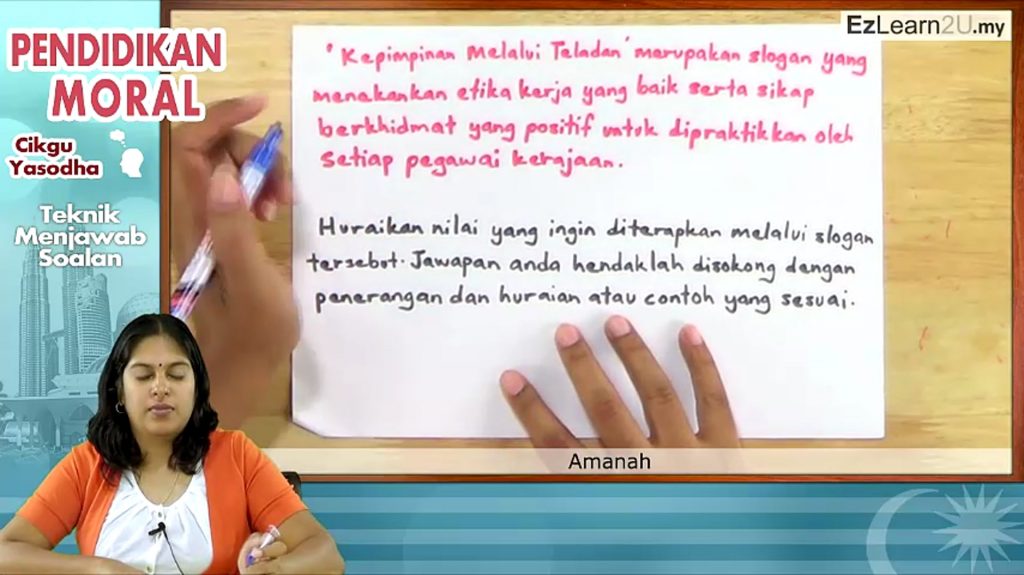 PENDIDIKAN
MORAL
Cikgu
Yasodha
Teknik
Menjawab
Soalan
EzLearn2U.my
'Kepimpinan Melalui Teladan' merupakan slogan yang
menekankan etika kerja yang baik serta sikap
berkhidmat yang positif untuk dipraktikkan oleh
setiap pegawai kerajaan.
Huraikan nilai yang ingin diterapkan melalui slogan
tersebut. Jawapan anda hendaklah disokong dengan
penerangan dan huraian atau contoh yang sesuai.
Amanah